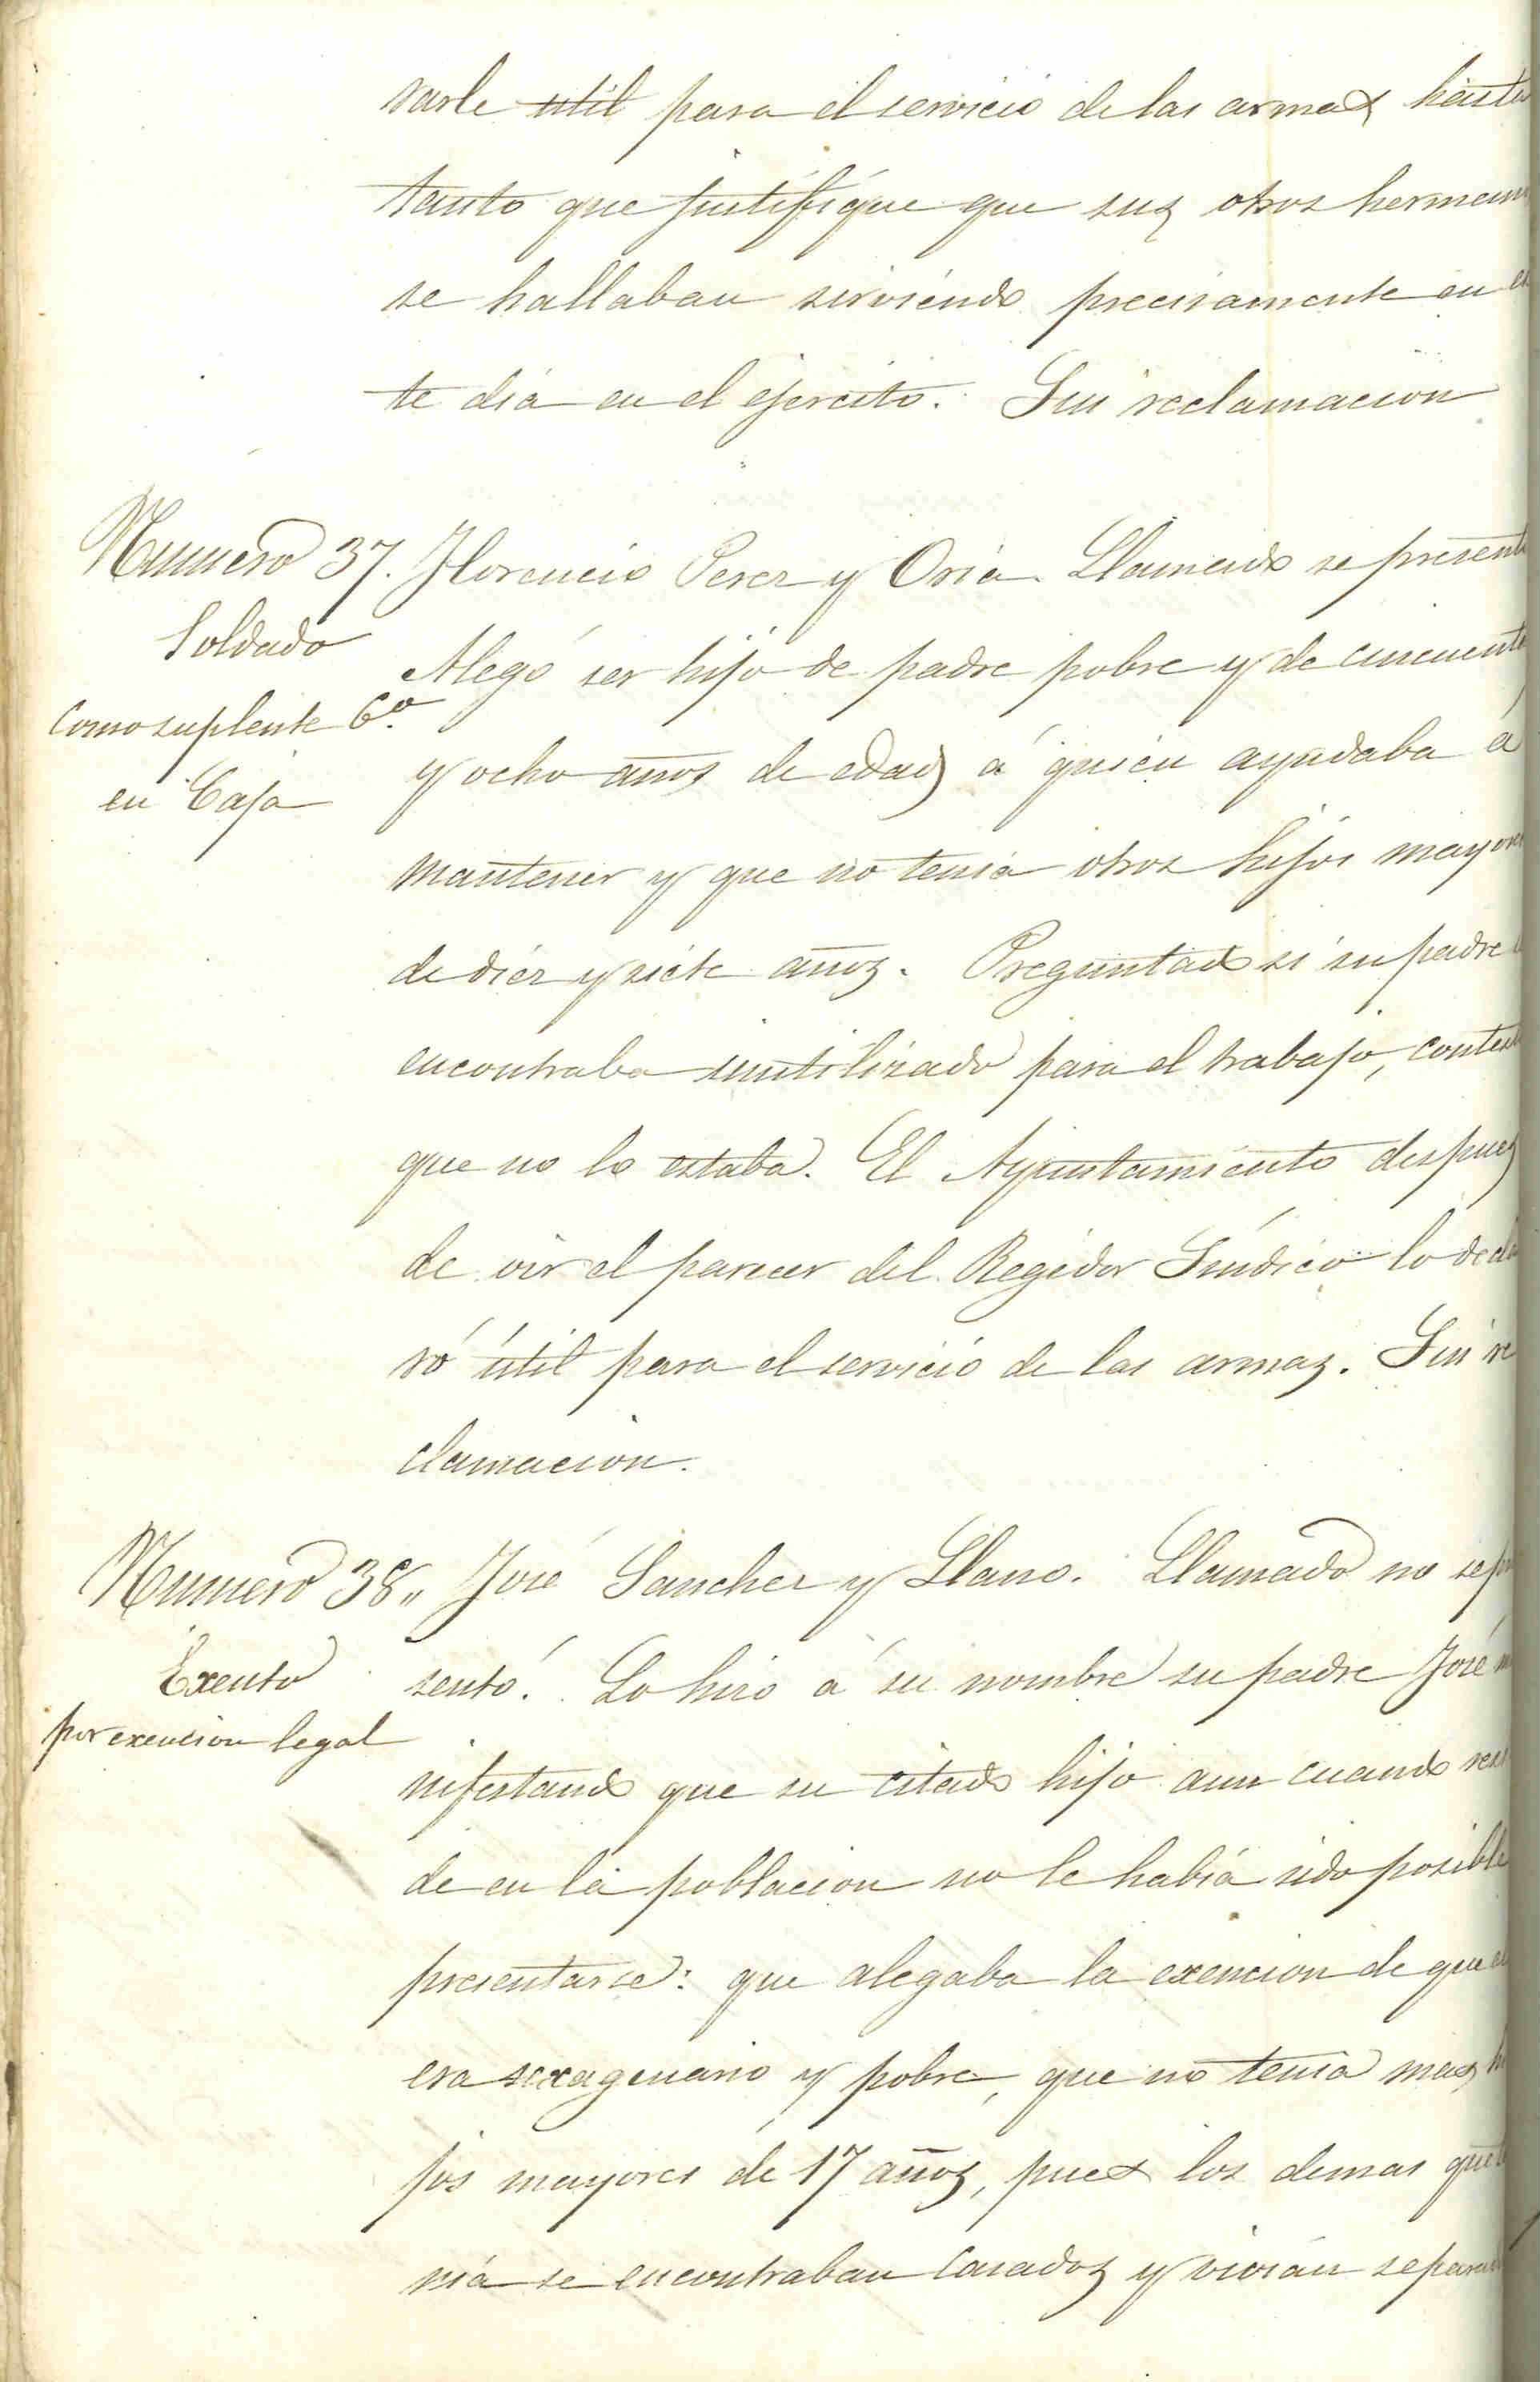 rarle util para el servicio de las armas hasta
tanto que justifique que sus otros herman
se hallaban sirviendo precisamente en es
te dia en el ejercito. Sin reclamacion
Numero 37. Florencio Perez y Oria. Llamado se presentó
Soldado
como suplente 6.º
en Caja
Alegó ser hijo de padre pobre y de cincuenta
y ocho años de edad á quien ayudaba á
mantener y que no tenia otros hijos mayores
de diez y siete años. Preguntado si su padre
encontraba inutilizado para el trabajo, contestó
que no lo estaba. El Ayuntamiento despues
de oir el parecer del Regidor Síndico lo decla
ró útil para el servicio de las armas. Sin re
clamacion.
Numero 38„ José Sanchez y Llano. Llamado no se pre
Exento
por exencion legal
sentó. Lo hizo á su nombre su padre José ma
nifestando que su citado hijo aun cuando resi
de en la poblacion no le habia sido posible
presentarse: que alegaba la exencion de que
era sexagenario y pobre, que no tenia mas hi
jos mayores de 17 años, pues los demas que te
nia se encontraban casados y vivian separad